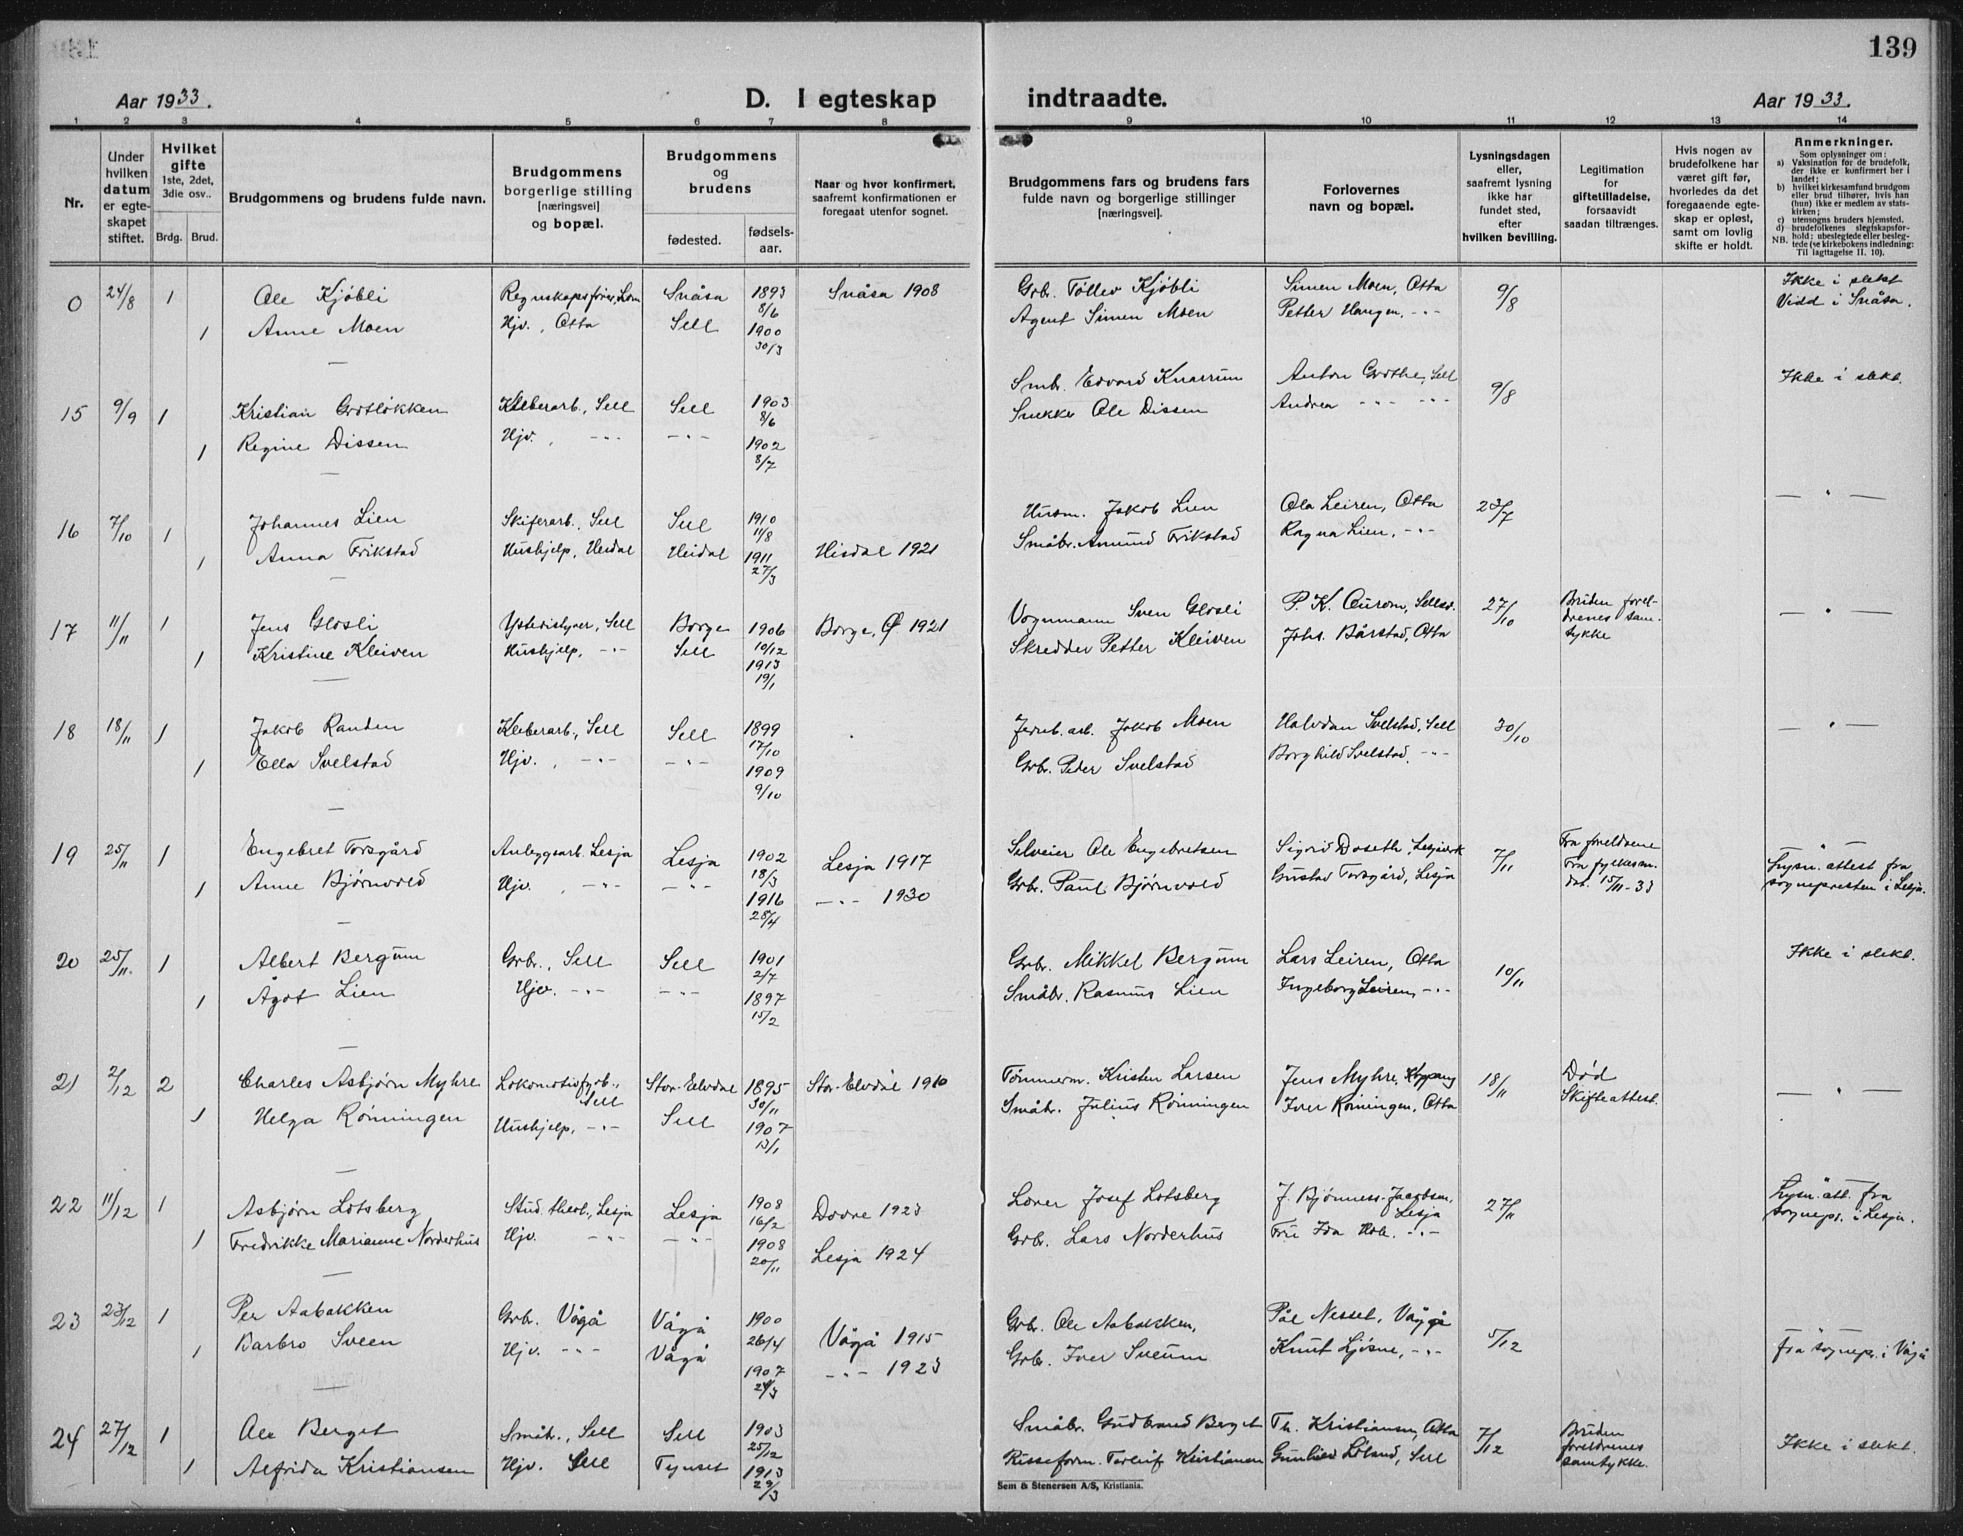 139
Aar 1933.
D. I egteskap indtraadte.
Aar 1933.
1 2 3 4 5 6 7 8 9 10 11 12 13 14
Nr.
Under hvilken datum er egte-skapet stiftet.
Hvilket gifte 1ste, 2det, 3die osv..
Brdg. Brud.
Brudgommens og brudens fulde navn.
Brudgommens borgerlige stilling [næringsvei] og bopæl.
Brudgommens og brudens
fødested.
fødsels-aar.
Naar og hvor konfirmert, saafremt konfirmationen er foregaat utenfor sognet.
Brudgommens fars og brudens fars fulde navn og borgerlige stillinger [næringsvei].
Forlovernes navn og bopæl.
Lysningsdagen eller, saafremt lysning ikke har fundet sted, efter hvilken bevilling.
Legitimation for giftetilladelse, forsaavidt saadan tiltrænges.
Hvis nogen av brudefolkene har været gift før, hvorledes da det foregaaende egte-skap er opløst, samt om lovlig skifte er holdt.
Anmerkninger.
Som oplysninger om:
a) Vaksination før de brudefolk, der ikke er konfirmert her i landet;
b) hvilket kirkesamfund brudgom eller brud tilhører, hvis han (hun) ikke er medlem av stats-kirken;
c) utensogns bruders hjemsted.
d) brudefolkenes slegtskapsfor-hold: ubeslegtede eller besleg-tede (se kirkebokens indledning:
NB. Til iagttagelse II. 10).
0 24/8 1 Ole Kjøbli Regnskapsfører, Lom Snåsa 1893 8/6 Snåsa 1908 Grb. Tollev Kjøbli Simen Moen, Otta 9/8 Ikke i slekt
1 Anne Moen Hjv., Otta Sell 1900 30/3 Agent Simen Moen Petter Haugen, -"- Vidd i Snåsa.
15 9/9 1 Kristian Grotløkken Kleberarb., Sell Sell 1903 8/6 Smbr. Edvard Knarrum Anton Grøthe, Sell 9/8 Ikke i slekt.
1 Regine Dissen Hjv., -"- -"- 1902 8/7 Snekker Ole Dissen Andrea -"- -"-
16 7/10 1 Johannes Lien Skiferarb., Sell Sell 1910 11/8 Husm. Jakob Lien Ola Leiren, Otta 23/7 — " —
1 Anna Frikstad Hushjelp, Heidal Heidal 1911 27/3 Hidal 1921 Småbr. Amund Frikstad Ragna Lien, -"-
17 11/11 1 Jens Glosli Ystedistyrer, Sell Borge 1906 10/12 Borge, Ø 1921 Vognmann Sven Glosli P. K. Aurom, Sellsv. 27/10 Bruden forel-drenes sam-tykke — " —
1 Kristine Kleiven Hushjelp, -"- Sell 1913 19/1 Skredder Petter Kleiven Johs. Bårstad, Otta
18 18/11 1 Jakob Randen Kleberarb., Sell Sell 1899 17/10 Jernb. arb. Jakob Moen Halvdan Svelstad, Sell 30/10 — " —
1 Ella Svelstad Hjv., -"- -"- 1909 9/10 Grb. Peder Svelstad Borghild Svelstad, -"-
19 25/11 1 Engebret Torsgård Anleggsarb. Lesja Lesja 1902 18/3 Lesja 1917 Selveier Ole Engebretsen Sigurd Doseth, Lesjaverk 7/11 Fra foreldrene Fra fylkesm. dat. 15/11-33 — " — Lysn. attest fra sognepresten i Lesja.
1 Anne Bjørnvold Hjv., -"- -"- 1916 28/4 -"- 1930 Grb. Paul Bjørnvold Gustav Torsgård, Lesja
20 25/11. 1 Albert Bergum Grb., Sell Sell 1901 2/7 Grb. Mikkel Bergum Lars Leiren, Otta 10/11 Ikke i slekt.
1 Ågot Lien Hjv. -"- -"- 1897 15/2 Småbr. Rasmus Lien Ingeborg Leiren, -"-
21 2/12 2 Charles Asbjørn Myhre Lokomotivfyrb., Sell Stor-Elvdal 1895 30/11 Stor-Elvdal 1910 Tømmerm. Kristen Larsen Jens Myhre, Koppang 18/11 Død Skifteattest. — " —
1 Helga Rønningen Hushjelp, -"- Sell 1907 13/1 Småbr. Julius Rønningen Iver Rønningen, Otta
22 11/12 1 Asbjørn Lotsberg Stud. theol., Lesja Lesja 1908 16/2 Dovre 1923 Lærer Josef Lotsberg J. Bjønness-Jacobsen, Lesja 27/11 — " — Lysn. att. fra sognepr. i Lesja.
1 Fredrikke Marianne Norderhus Hjv. -"- -"- 1908 20/11 Lesja 1924 Grb. Lars Norderhus Fru Ida Hob. -"-
23 23/12 1 Per Aabakken Grb. Vågå Vågå 1900 26/4 Vågå 1915 Grb. Ole Aabakken, Pål Nesset, Vågå 5/12 — " — fra sognepr. i Vågå
1 Barbro Sveen Hjv. -"- Vågå 1907 24/3 -"- 1923 Grb. Iver Sveum Knut Ljøsne, -"-
24 27/12 1 Ole Berget Småbr., Sell Sell 1903 25/12 Småbr. Gudbrand Berget Th. Kristiansen, Otta 7/12 Bruden foreldrenes samtykke. Ikke i slekt.
1 Alfrida Kristiansen Hjv. Sell Tynset 1913 29/3 Kristiansen Gunliev Løland, Sell
Sem & Stenersen A/S, Kristiania.